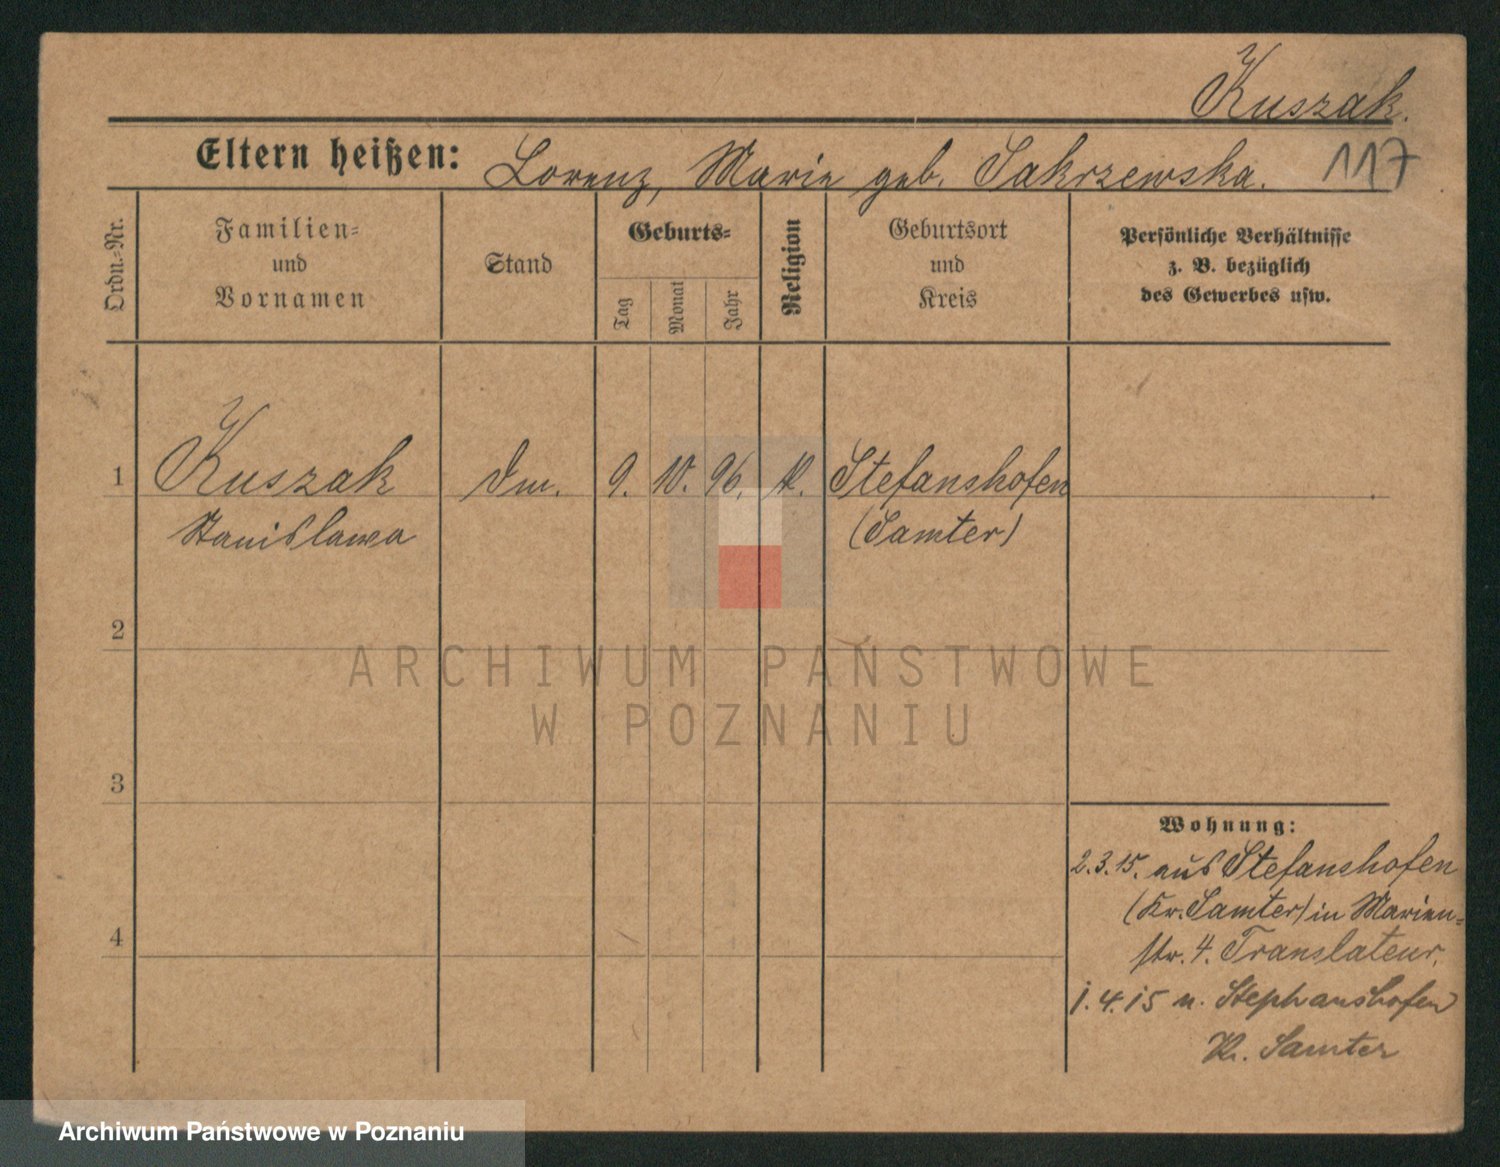 Kuszak.
Eltern heißen: Lorenz, Marie geb. Sakrzewska. 117
Ordn.-Nr.
Familien-
und
Vornamen
Stand
Geburts-
Tag
Monat
Jahr
Religion
Geburtsort
und
Kreis
Persönliche Verhältnisse
z. B. bezüglich
des Gewerbes usw.
1 Kuszak Dm. 9. 10. 96. k. Stefanshofen
Stanislawa (Samter)
2
3
4
Wohnung:
2.3.15. aus Stefanshofen
(Kr. Samter) in Marien-
str. 4. Translateur.
1.4.15 n. Stephanshofen
Kr. Samter
ARCHIWUM PAŃSTWOWE
W POZNANIU
Archiwum Państwowe w Poznaniu